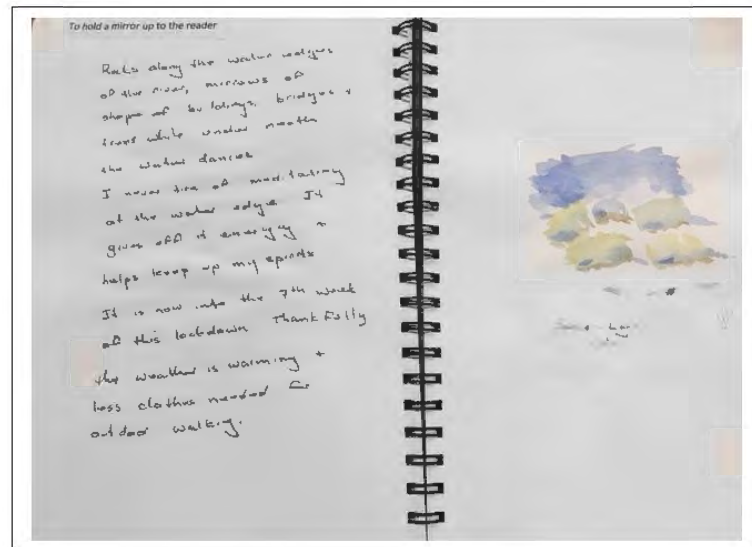 To hold a mirror up to the reader
Rocks along the water edges
of the river, mirrows of
shape of buildings, bridges +
trees while under neath
the water dances
I never tire of meditating
at the water edge It
gives off it energy +
helps keep up my spirits
It is now into the 7th week
of this lockdown Thankfully
the weather is warming +
less clothes needed for
outdoor walking.